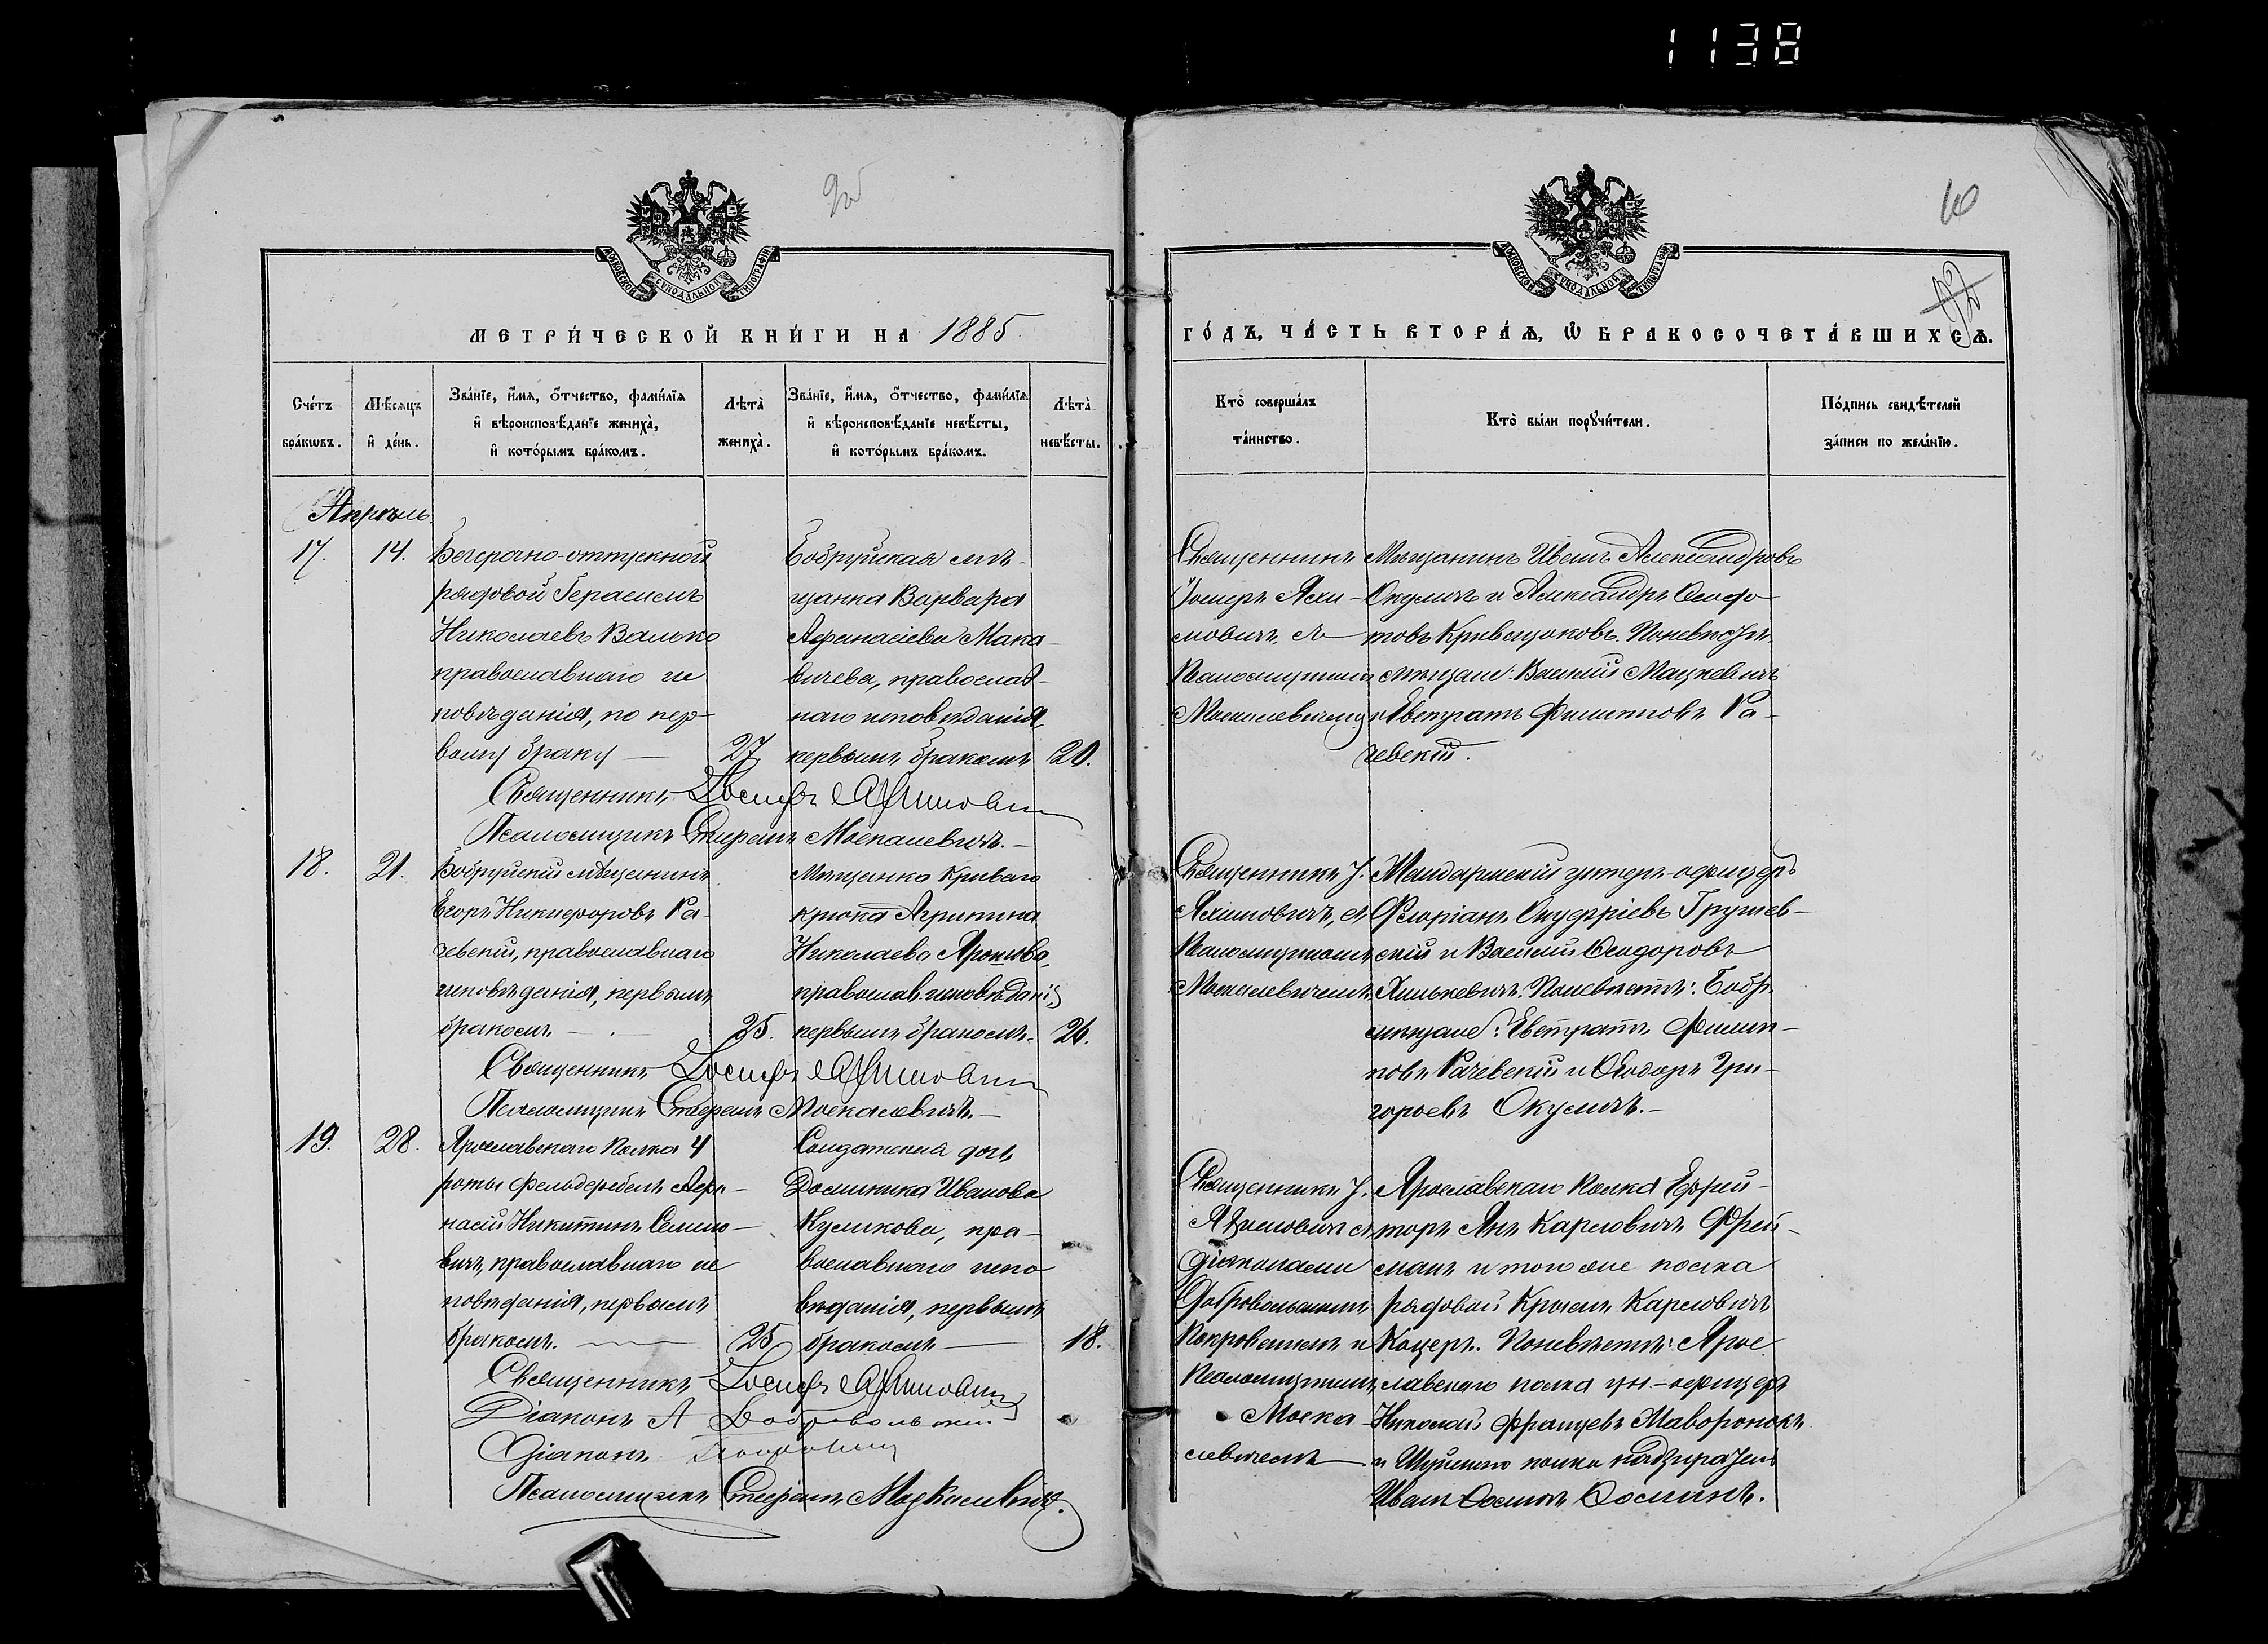 1138
10
92
МЕТРИ́ЧЕСКОЙ КНИ́ГИ НА 1885
ГО́ДЪ, ЧА́СТЬ ВТОРА́Ѧ, Ѡ БРАКОСОЧЕТА́ВШИХСѦ.
Сче́тъ бра́кѡвъ.
Мѣ́сяцъ и де́нь.
Зва́нїе, и́мя, о́тчество, фами́лїя
и вѣроисповѣ́данїе жениха̀,
и кото́рымъ бра́комъ.
Лѣта̀ жениха̀.
Зва́нїе, и́мя, о́тчество, фами́лїя
и вѣроисповѣ́данїе невѣ́сты,
и кото́рымъ бра́комъ.
Лѣта̀ невѣ́сты.
Кто̀ соверша́лъ
та́инство.
Кто̀ бы́ли порꙋчи́тели.
По́дпись свидѣ́телей
за́писи по жела́нїю.
Апрѣль
17. 14.
Безсрочно-отпускной
рядовой Герасимъ
Николаевъ Валько
православнаго ис
повѣданія, по пер-
вому браку — 27
Бобруйская мѣ-
щанка Варвара
Афанасіева Мака-
вичева, православ-
наго исповѣданія,
первымъ бракомъ 20.
Священникъ
Іосифъ Яхи-
мовичъ, съ
Псаломщикомъ
Москалевичемъ
Мѣщанинъ Иванъ Александровъ
Окуличъ и Александръ Ѳедо-
товъ Кривощоковъ. По невѣстѣ
мѣщане: Василій Мацкевичъ
и Евстратъ Филиповъ Ра-
чевскій.
Священникъ Іосифъ Яхимовичъ
Псаломщикъ Стефанъ Москалевичъ.
18. 21.
Бобруйскій мѣщанинъ
Егоръ Никифоровъ Ра-
чевскій, православнаго
исповѣданія, первымъ
бракомъ — 25.
Мѣщанка Криваго
крюка Агрипина
Николаева
православ. исповѣданія
первымъ бракомъ. 26.
Священникъ І.
Яхимовичъ, съ
Псаломщикомъ
Москалевичемъ.
Жандармскій унтеръ-офицеръ
Флоріанъ Онуфріевъ Грушев-
скій и Василій Ѳеодоровъ
Хилькевичъ. По невѣстѣ: Бобр.
мѣщане: Евстратъ Филип-
повъ Рачевскій и Ѳеодоръ Гри-
горьевъ Окуличъ.
Священникъ Іосифъ Яхимовичъ
Псаломщикъ Стефанъ Москалевичъ.
19. 28.
Ярославскаго Полка 4
роты фельдфебель Афа-
насій Никитинъ
православнаго ис
повѣданія, первымъ
бракомъ. — 25
Солдатская дочь
Доминика Иванова
Куликова, пра-
вославнаго испо
вѣданія, первымъ
бракомъ — 18.
Священникъ І.
Яхимовичъ съ
діаконами
Добровольскимъ
Покровскимъ и
Псаломщикомъ
Моска-
левичемъ
Ярославскаго Полка Ефрей-
торъ Янъ Карловичъ Фрей-
манъ и того же полка
рядовой Карловичъ
Коцеръ. По невѣстѣ: Яро
славскаго полка ун.-офицеръ
Николай Францевъ Жаворонокъ
и Шуйскаго полка надзиратель
Иванъ
Священникъ Іосифъ Яхимовичъ
Діаконъ А Добровольскій
Діаконъ Покровскій
Псаломщикъ Стефанъ Москалевичъ.